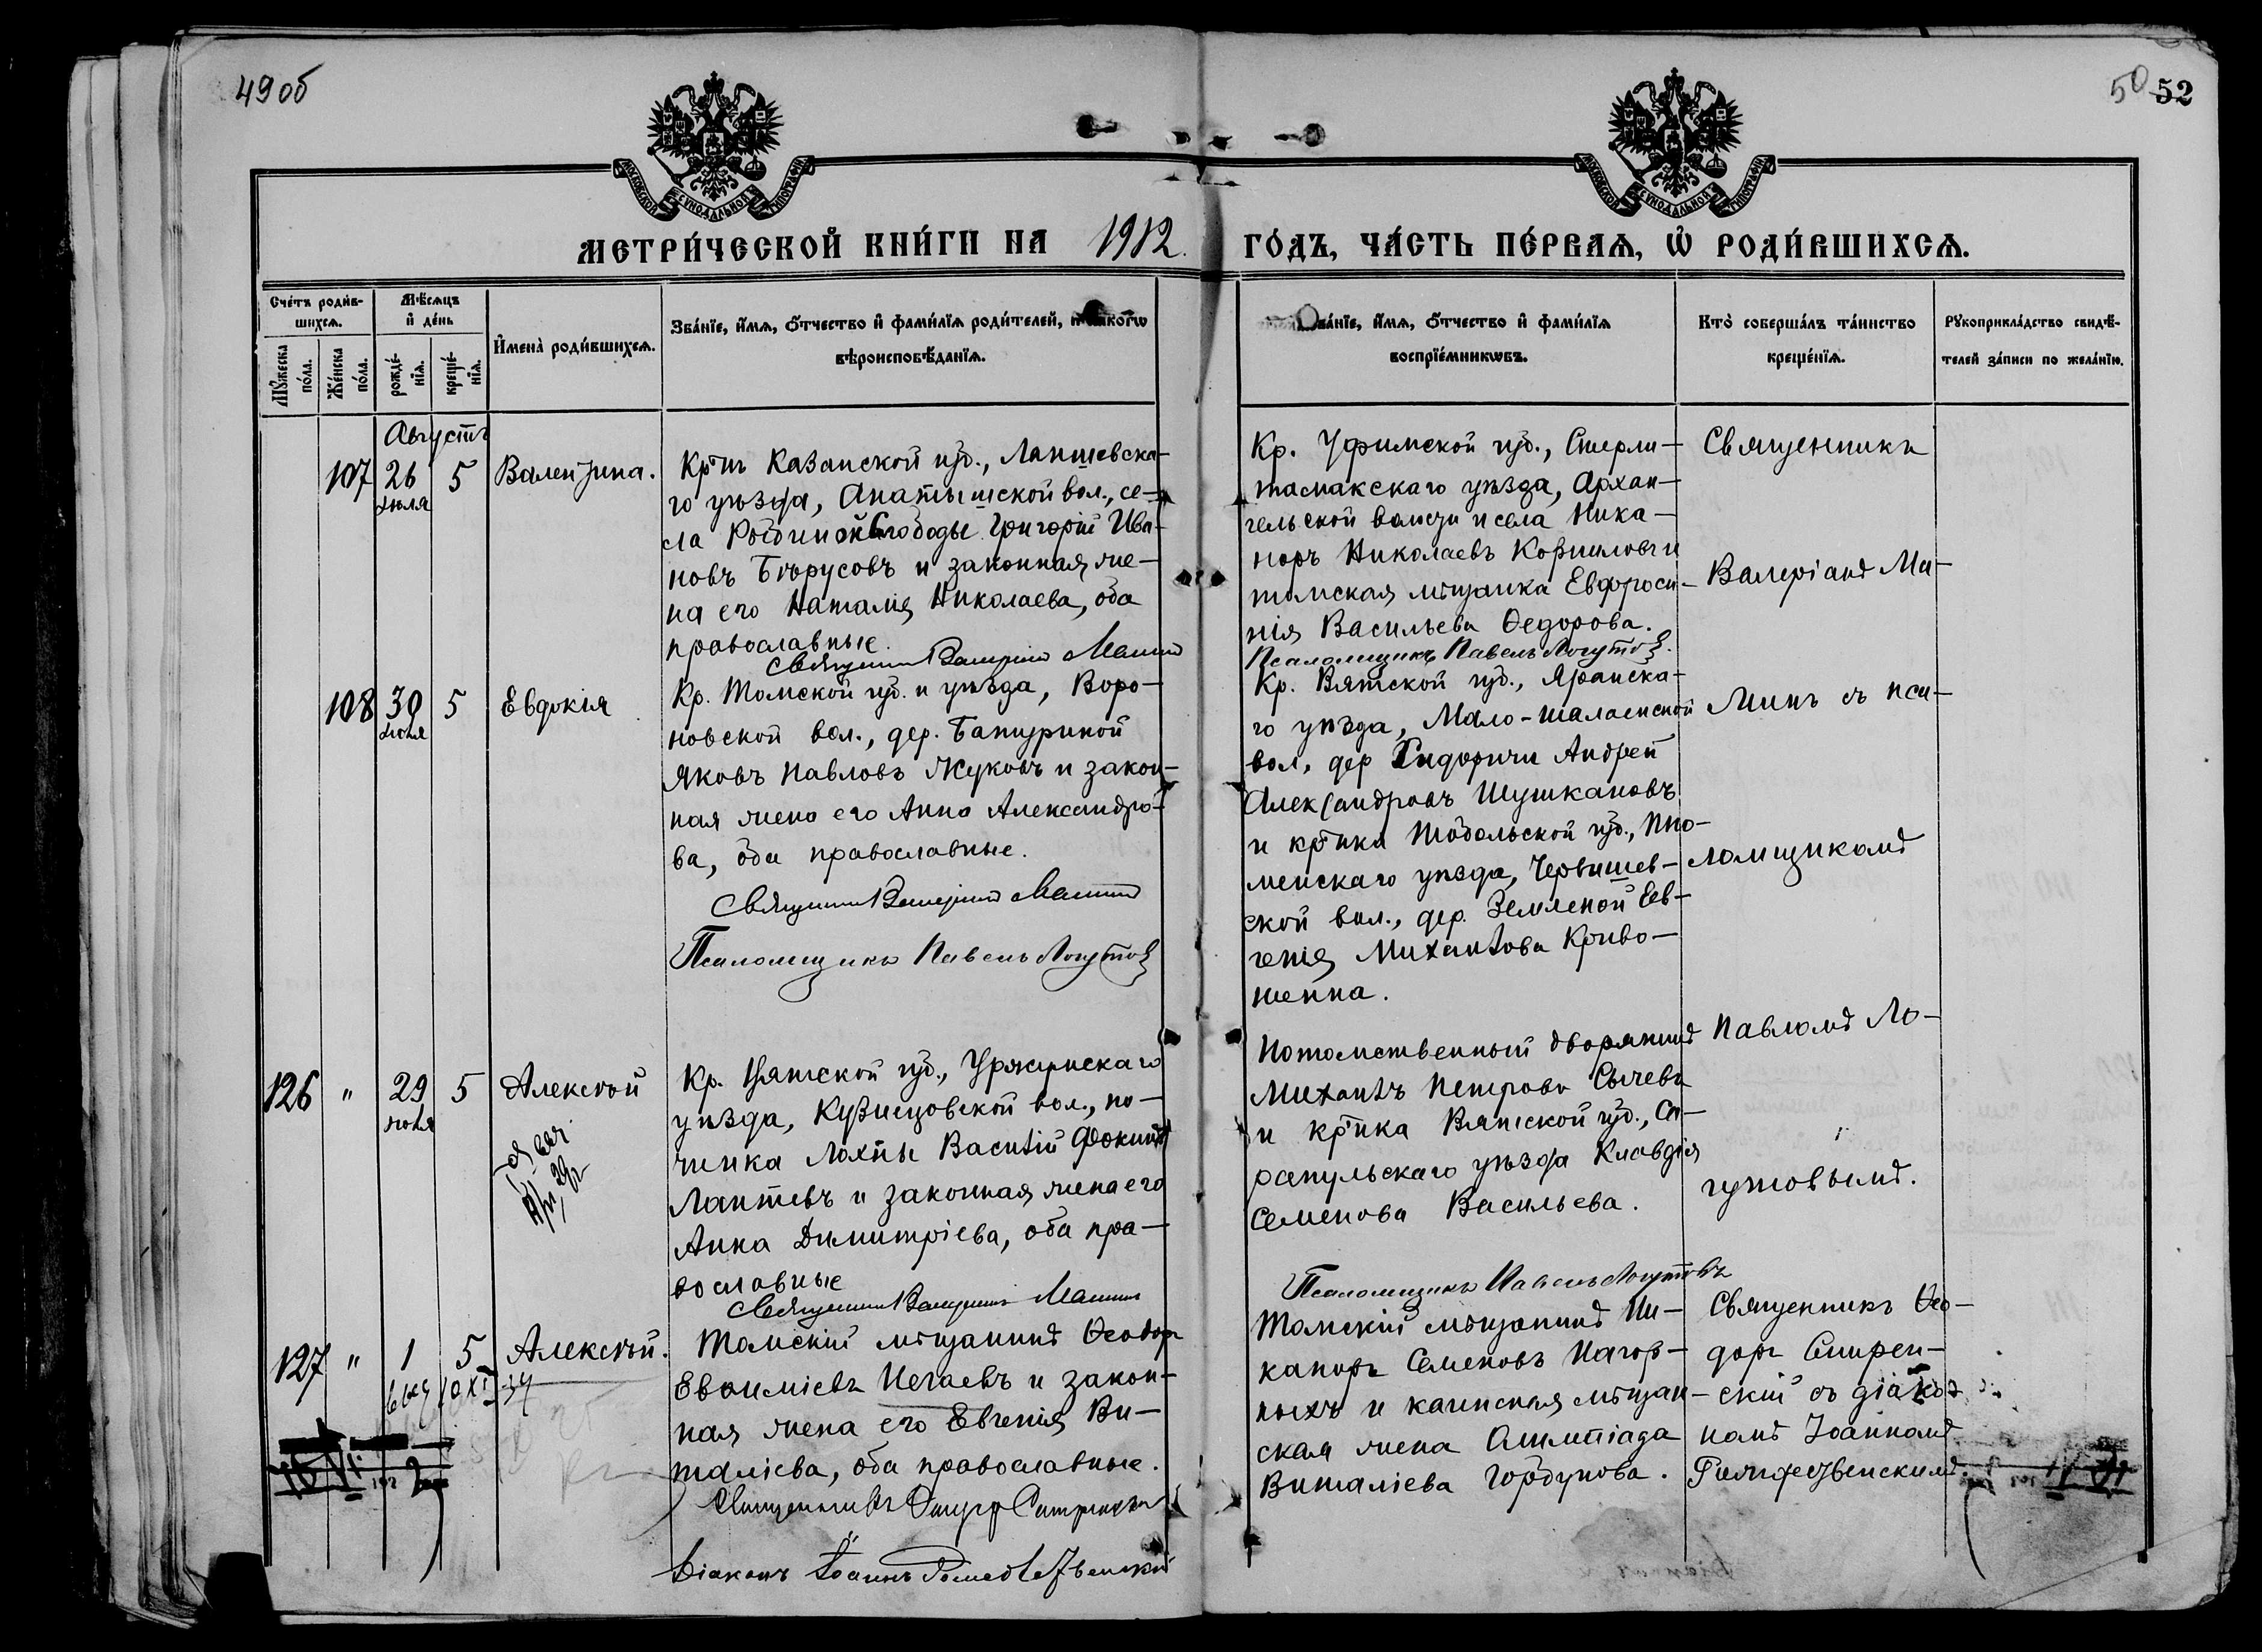 49 об
50 52
МОСКОВСКОЙ СѴНОДАЛЬНОЙ ТИПОГРАФІИ
МОСКОВСКОЙ СѴНОДАЛЬНОЙ ТИПОГРАФІИ
МЕТРИ́ЧЕСКОЙ КНИ́ГИ НА 1912 ГО́ДЪ, ЧА́СТЬ ПЕ́РВАѦ, Ѡ҆ РОДИ́ВШИХСѦ.
Сче́тъ роди́в-
шихсѧ.
Мꙋ́жеска
по́ла.
Же́нска
по́ла.
Мѣ́сѧцъ
и҆ де́нь
рожде́-
нїѧ.
креще́-
нїѧ.
И҆мена̀ роди́вшихсѧ.
Зва́нїе, и҆́мѧ, ѻ҆́тчество и҆ фами́лїѧ роди́телей, и҆ како́гѡ
вѣроисповѣ́данїѧ.
Зва́нїе, и҆́мѧ, ѻ҆́тчество и҆ фами́лїѧ
воспрїе́мникѡвъ.
Кто̀ соверша́лъ та́инство
креще́нїѧ.
Рꙋкоприкла́дство свидѣ́-
телей за́писи по жела́нїю.
Августъ
107 26 5 Валентина.
іюля
Кр-нъ Казанской губ., Лаишевска-
го уѣзда, Анатышской вол., се-
ла Рыбной Слободы Григорій Ива-
новъ Бѣрусовъ и законная же-
на его Наталія Николаева, оба
православные.
Священникъ Валеріанъ Манинъ
Кр. Уфимской губ., Стерли-
тамакскаго уѣзда, Архан-
гельской волости и села Ника-
норъ Николаевъ Корниловъ и
томская мѣщанка Евфроси-
нія Васильева Ѳедорова.
Псаломщикъ Павелъ Логутовъ.
Священникъ
Валеріанъ Ма-
108 30 5 Евдокія
іюля
Кр. Томской губ. и уѣзда, Воро-
новской вол., дер. Батуриной
Яковъ Павловъ Жуковъ и закон-
ная жена его Анна Александро-
ва, оба православные.
Священникъ Валеріанъ Манинъ
Псаломщикъ Павелъ Логутовъ
Кр. Вятской губ., Яранска-
го уѣзда, Мало-шалаенской
вол., дер Сидоричи Андрей
Александровъ Шушкановъ
и кр-нка Тобольской губ., Тю-
менскаго уѣзда, Червишев-
ской вол., дер. Земленой Ев-
генія Михаилова Криво-
шеина.
нинъ съ пса-
ломщикомъ
126 " 29 5 Алексѣй
іюля
Кр. Вятской губ., Уржумскаго
уѣзда, Кузнецовской вол., по-
чинка Лохты Василій Фокинъ
Лаптевъ и законная жена его
Анна Димитріева, оба пра-
вославные
Священникъ Валеріанъ Манинъ
Потомственный дворянинъ
Михаилъ Петровъ Сычевъ
и кр-нка Вятской губ., Са-
рапульскаго уѣзда Клавдія
Семенова Васильева.
Псаломщикъ Павелъ Логутовъ
Павломъ Ло-
гутовымъ.
127 " 1 5 Алексѣй.
Томскій мѣщанинъ Ѳеодоръ
Евѳиміевъ Нечаевъ и закон-
ная жена его Евгенія Ви-
таліева, оба православные.
Священникъ
Діаконъ Іоаннъ Рождественскій
Томскій мѣщанинъ Ни-
каноръ Семеновъ Нагор-
ныхъ и каинская мѣщан-
ская жена Олимпіада
Виталіева Горбунова.
Священникъ Ѳео-
доръ Смирен-
скій съ діако-
номъ Іоанномъ
Рождественскимъ.